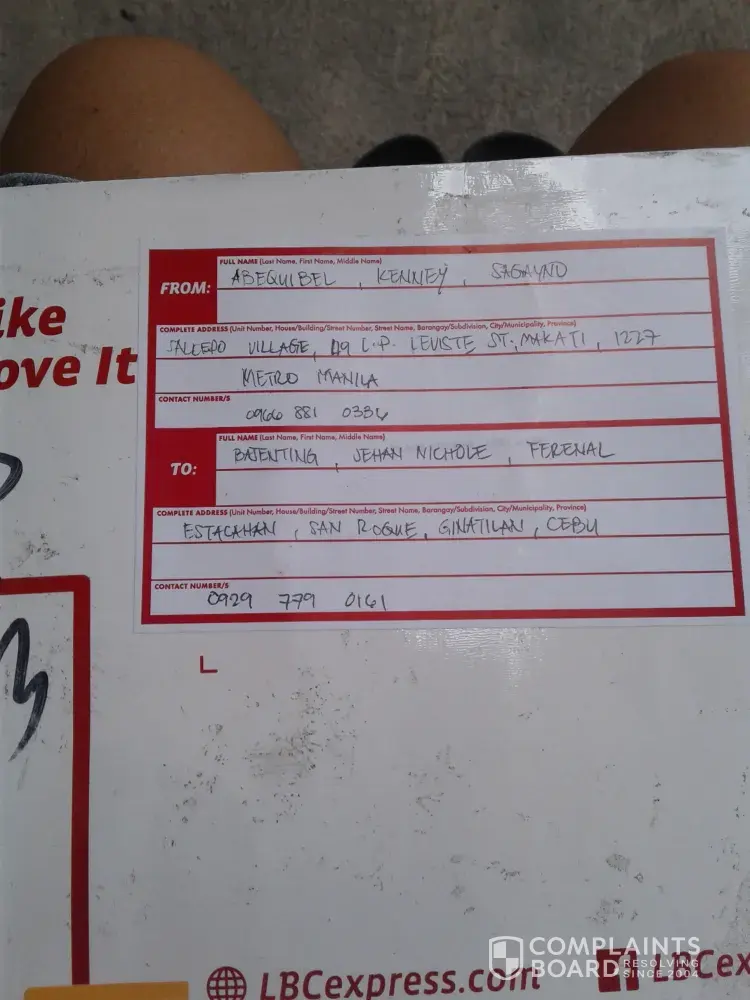 ike
ove It
FROM:
FULL NAME (Last Name, First Name, Middle Name)
ABEQUIBEL , KENNEY , SAGAYNO
COMPLETE ADDRESS (Unit Number, House/Building/Street Number, Street Name, Barangay/Subdivision, City/Municipality, Province)
SALCEDO VILLAGE, 49 L.P. LEVISTE ST., MAKATI , 1227
METRO MANILA
CONTACT NUMBER/S
0966 881 0336
TO:
FULL NAME (Last Name, First Name, Middle Name)
BATENTING , JEHAN NICHOLE , FERENAL
COMPLETE ADDRESS (Unit Number, House/Building/Street Number, Street Name, Barangay/Subdivision, City/Municipality, Province)
ESTACAHAN , SAN ROQUE , GINATILAN , CEBU
CONTACT NUMBER/S
0929 779 0161
LBCexpress.com
LBCex
COMPLAINTS
BOARD RESOLVING
SINCE 2004